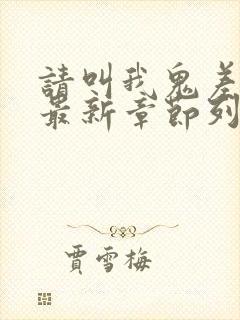 請叫我鬼差
最新章節列
賈雪梅